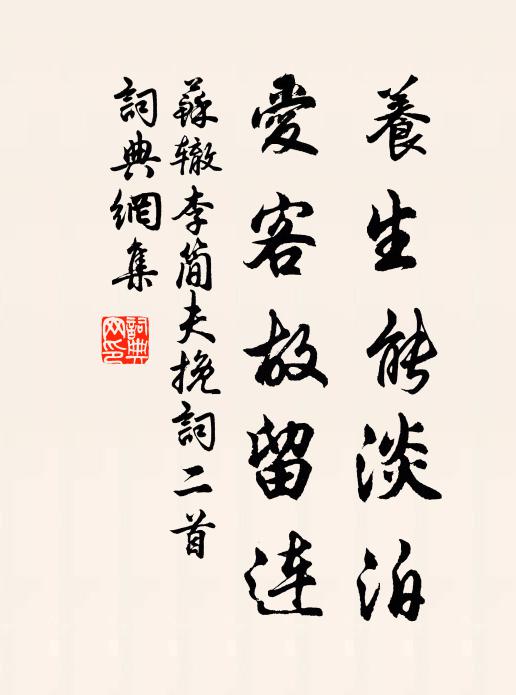 養生能淡泊
愛客故留連
蘇辙李简夫挽詞二首
詞典網集
詞典网印